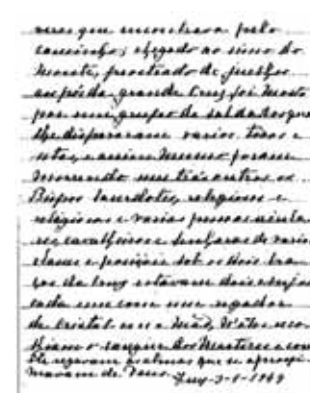 veres que encontrava pelo
caminho; chegado ao cimo do
monte, prostrado de joelhos
aos pés da grande Cruz foi morto
por um grupo de soldados que
lhe dispararam varios tiros e
setas, e assim mesmo foram
morrendo uns trás outros os
Bispos Sacerdotes, religiosos e
religiosas e varias pessoas
cavalheiros e senhoras de varias
classes e posições. Sob os dois bra
ços da Cruz estavam dois Anjos
cada um com um regador
de cristal em a mão, n'eles reco
lhiam o sangue dos Martires e com
ele regavam as almas que se aproxi
mavam de Deus.
Tuy-3-1-1944